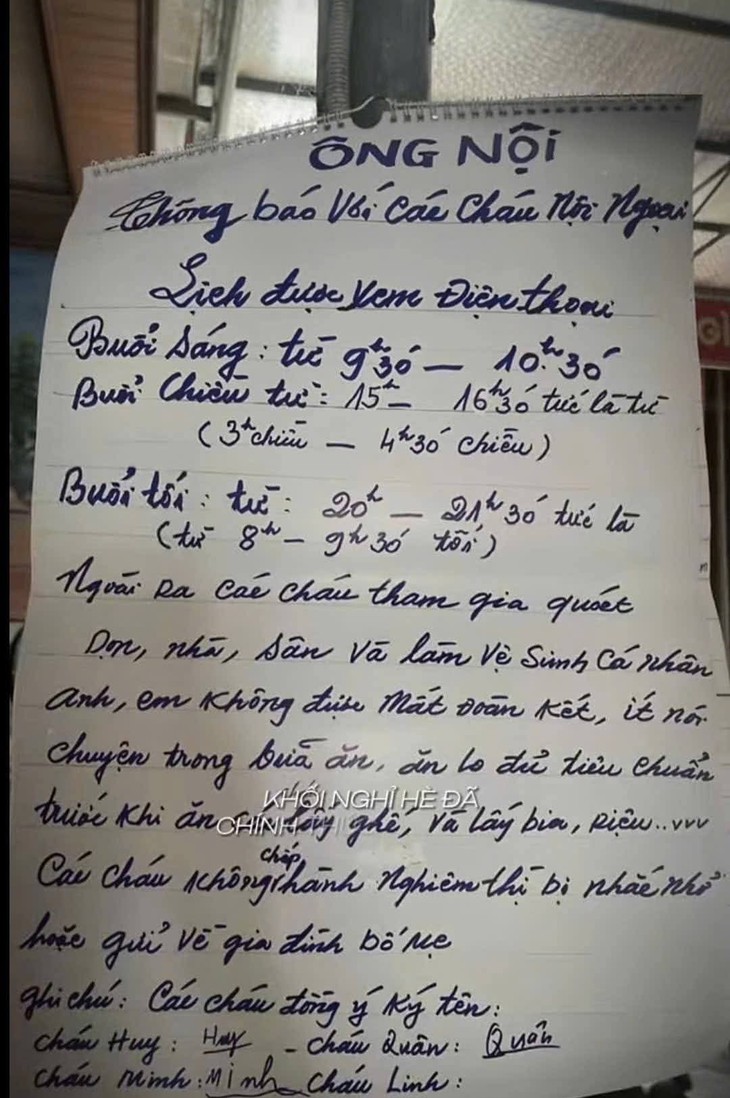 ÔNG NỘI
Thông báo Với Các Cháu Nội Ngoại
Lịch được xem Điện thoại
Buổi Sáng: từ 9h30 — 10h30
Buổi Chiều từ: 15h — 16h30 tức là từ
(3h chiều — 4h30 chiều)
Buổi tối: từ: 20h — 21h30 tức là
(từ 8h — 9h30 tối)
Ngoài Ra các cháu tham gia quét
Dọn, nhà, Sân và làm vệ Sinh Cá nhân
Anh, em không được Mất Đoàn kết, ít nói
chuyện trong bữa ăn, ăn lo đủ tiêu chuẩn
trước khi ăn lấy ghế, và lấy bia, Riệu..vvv
KHỐI NGHỈ HÈ ĐÃ
CHÍNH
Các cháu không chấp hành Nghiêm thì bị nhắc nhở
hoặc gửi Về gia đình bố Mẹ
ghi chú: Các cháu đồng ý Ký tên:
cháu Huy: Huy - cháu Quân: Quân
cháu Minh: Minh Cháu Linh: